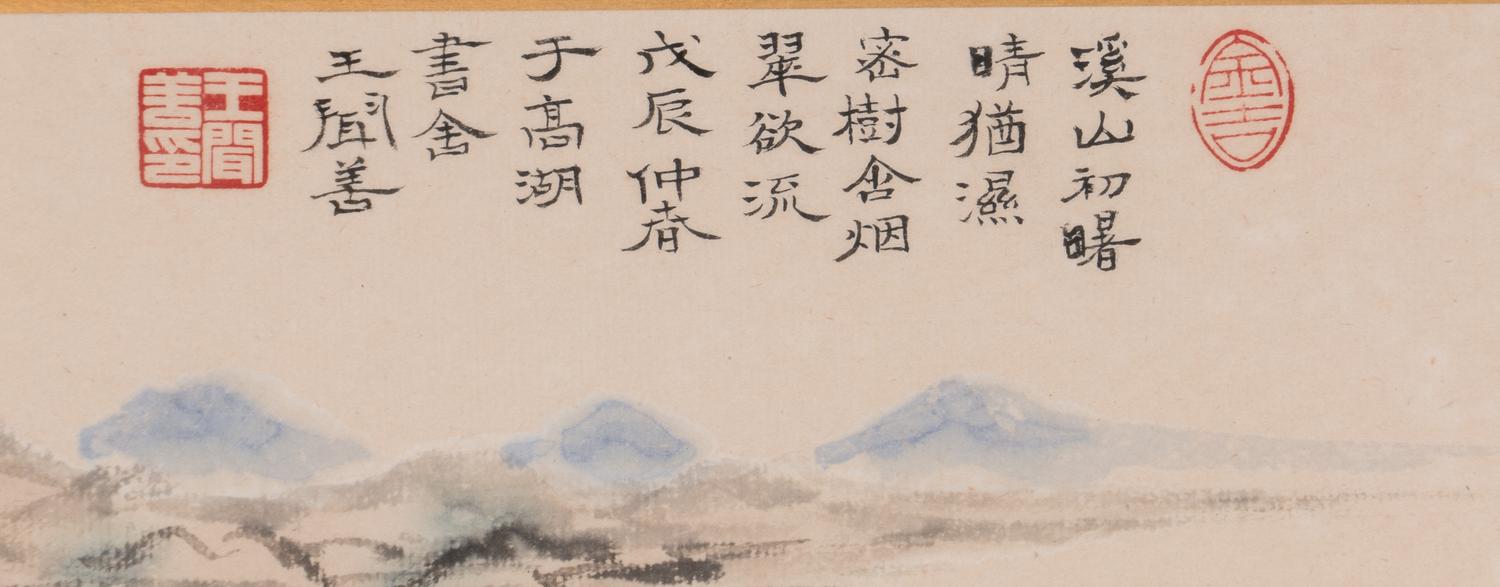 溪山初曙
晴猶濕
密樹含烟
翠欲流
戊辰仲春
于高湖
書舍
王聞善
王聞善印